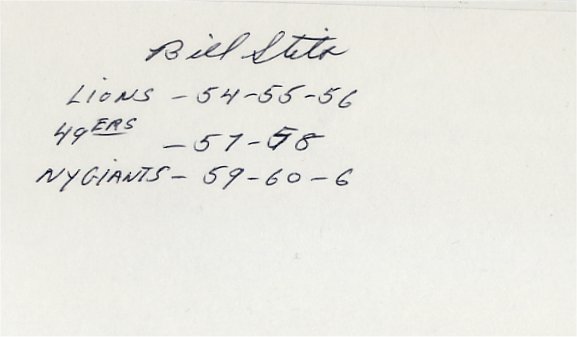 Bill Stits
LIONS - 54-55-56
49ERS - 57-58
NY GIANTS - 59-60-6